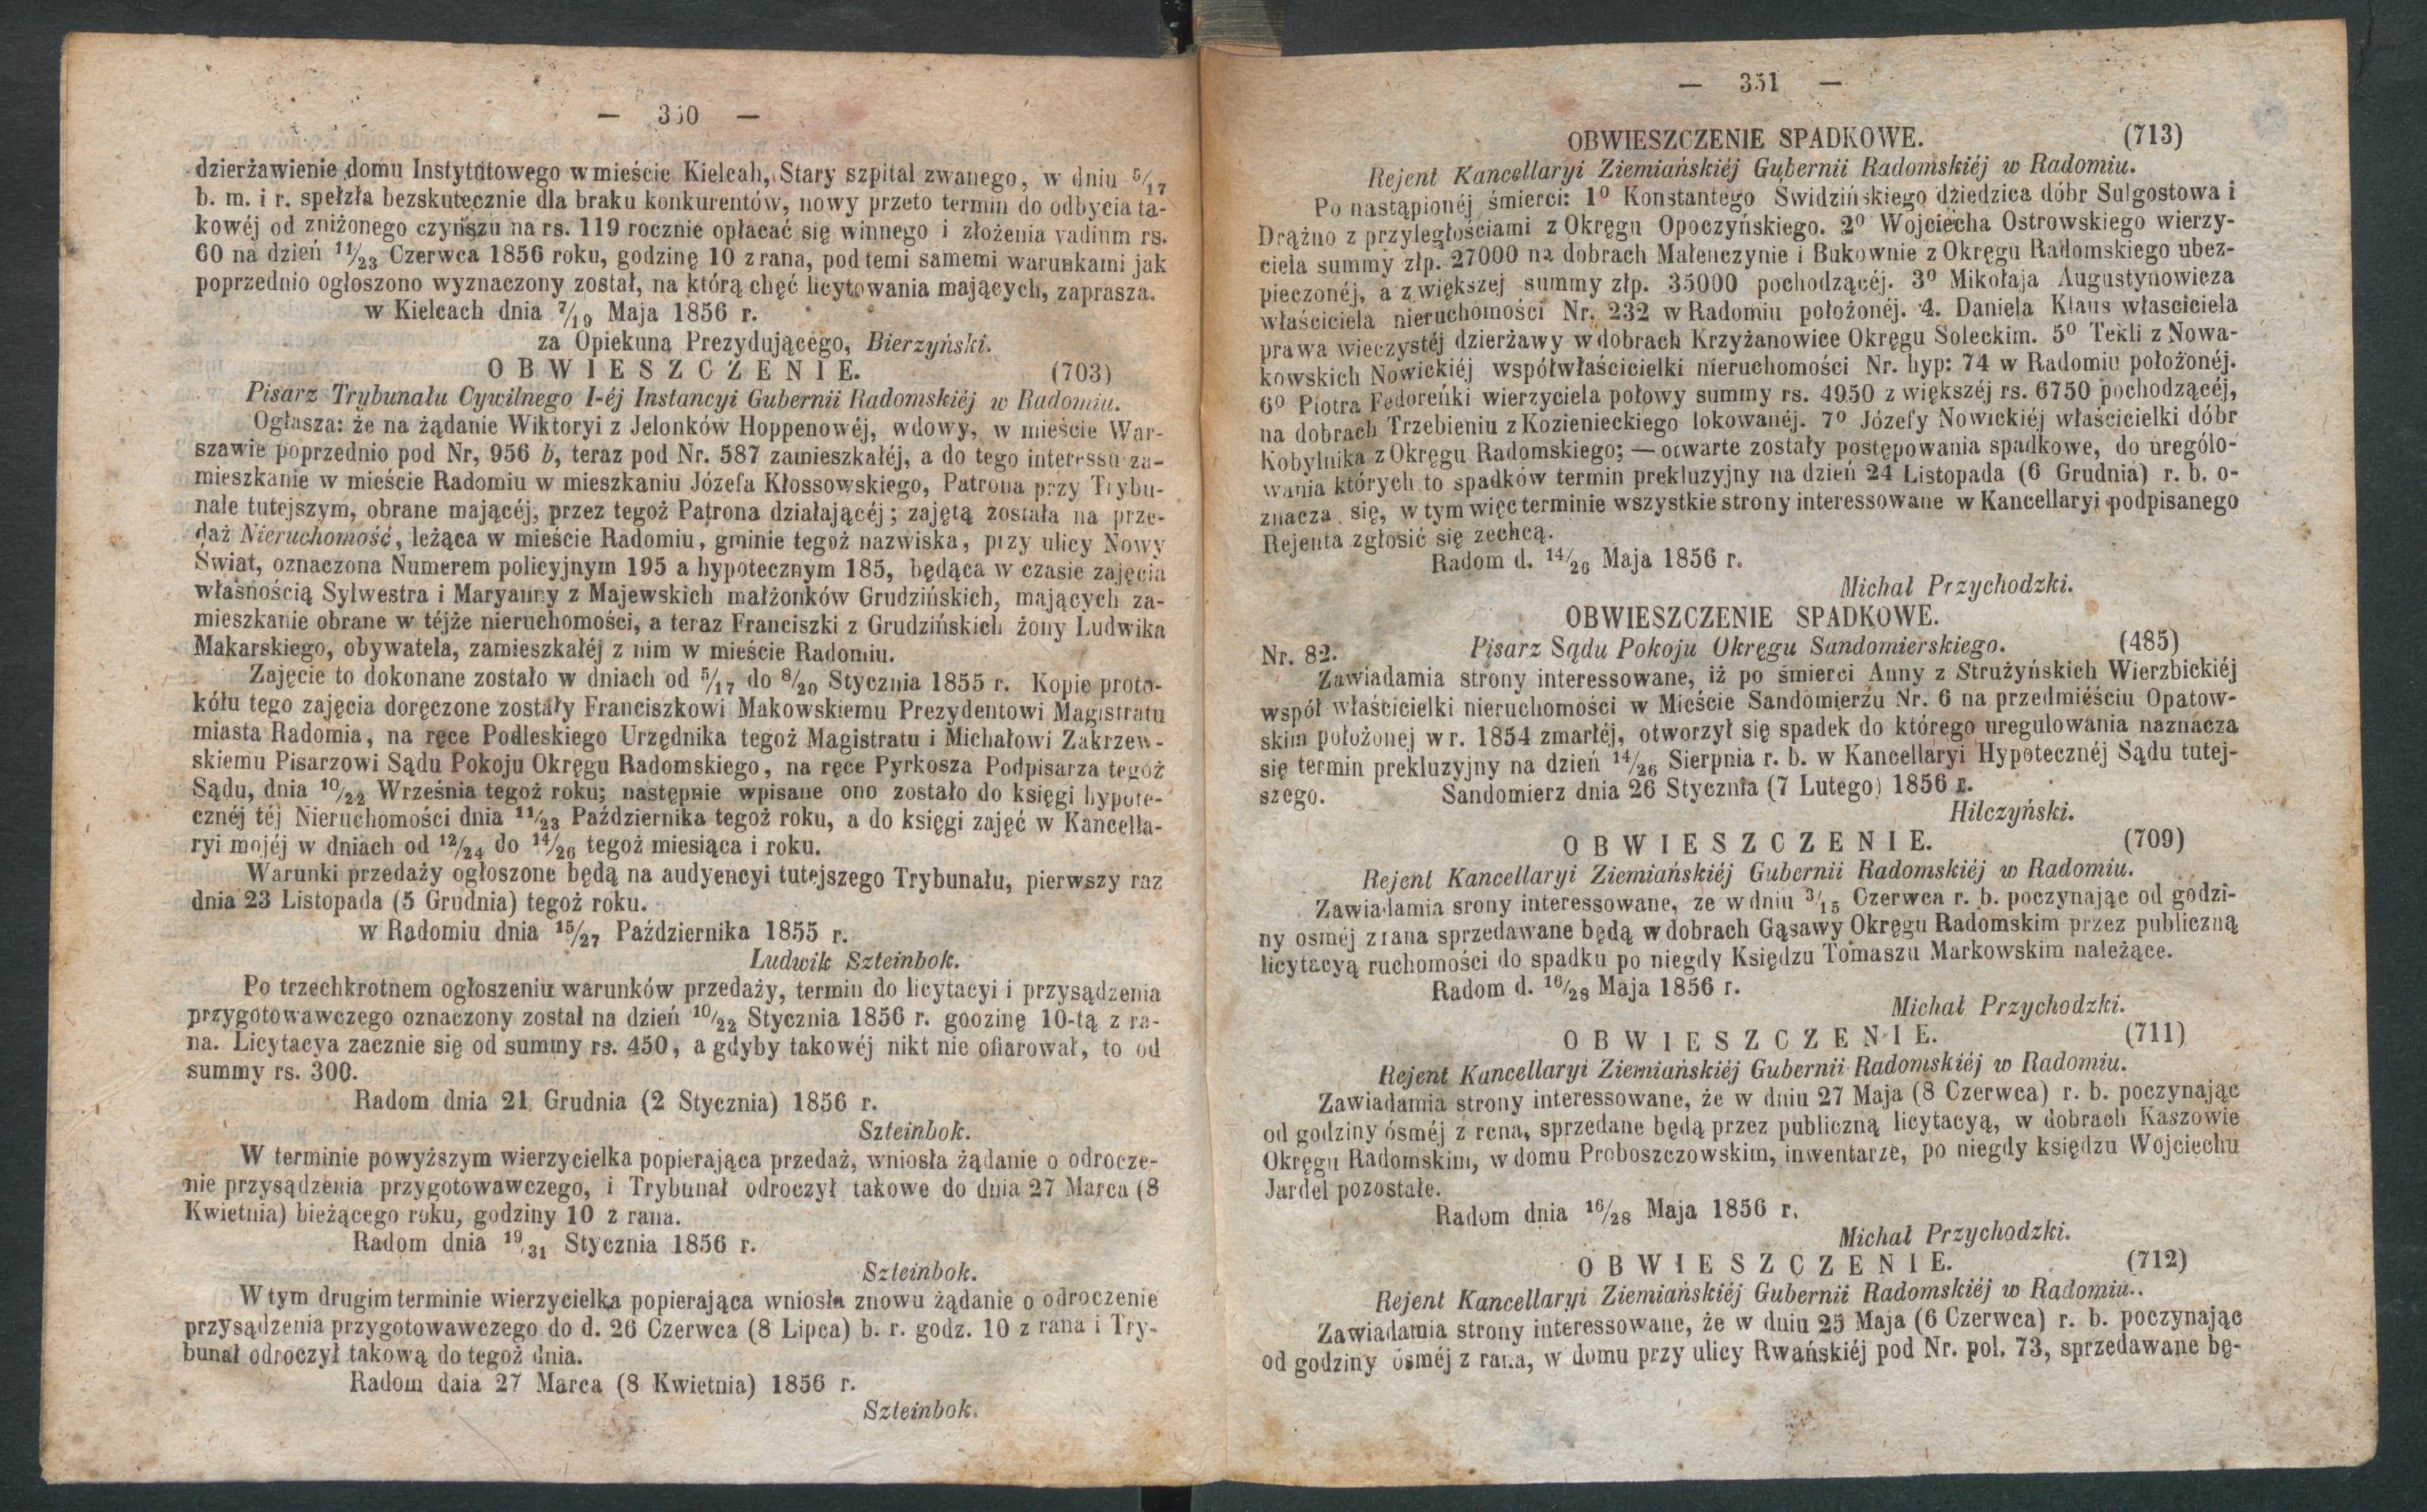 — 350 —
dzierżawienie domu Instytutowego w mieście Kielcah, Stary szpital zwanego, w dniu 5/17
b. m. i r. spełzła bezskutecznie dla braku konkurentów, nowy przeto termin do odbycia ta-
kowéj od zniżonego czynszu na rs. 119 rocznie opłacać się winnego i złożenia vadium rs.
60 na dzień 11/23 Czerwca 1856 roku, godzinę 10 z rana, pod temi samemi warunkami jak
poprzednio ogłoszono wyznaczony został, na którą chęć licytowania mających, zaprasza.
w Kielcach dnia 7/19 Maja 1856 r.
za Opiekuna Prezydującego, Bierzyński.
OBWIESZCZENIE. (703)
Pisarz Trybunału Cywilnego I-éj Instancyi Gubernii Radomskiéj w Radomiu.
Ogłasza: że na żądanie Wiktoryi z Jelonków Hoppenowéj, wdowy, w mieście War-
szawie poprzednio pod Nr, 956 b, teraz pod Nr. 587 zamieszkałéj, a do tego interessu za-
mieszkanie w mieście Radomiu w mieszkaniu Józefa Kłossowskiego, Patrona przy Trybu-
nale tutejszym, obrane mającéj, przez tegoż Patrona działającéj; zajętą została na prze-
daż Nieruchomość, leżąca w mieście Radomiu, gminie tegoż nazwiska, przy ulicy Nowy
Świat, oznaczona Numerem policyjnym 195 a hypotecznym 185, będąca w czasie zajęcia
własnością Sylwestra i Maryanny z Majewskich małżonków Grudzińskich, mających za-
mieszkanie obrane w téjże nieruchomości, a teraz Franciszki z Grudzińskich żony Ludwika
Makarskiego, obywatela, zamieszkałéj z nim w mieście Radomiu.
Zajęcie to dokonane zostało w dniach od 5/17 do 8/20 Stycznia 1855 r. Kopie proto-
kółu tego zajęcia doręczone zostały Franciszkowi Makowskiemu Prezydentowi Magistratu
miasta Radomia, na ręce Podleskiego Urzędnika tegoż Magistratu i Michałowi Zakrzew-
skiemu Pisarzowi Sądu Pokoju Okręgu Radomskiego, na ręce Pyrkosza Podpisarza tegoż
Sądu, dnia 10/22 Września tegoż roku; następnie wpisane ono zostało do księgi hypote-
cznéj téj Nieruchomości dnia 11/23 Października tegoż roku, a do księgi zajęć w Kancella-
ryi mojéj w dniach od 12/24 do 14/26 tegoż miesiąca i roku.
Warunki przedaży ogłoszone będą na audyencyi tutejszego Trybunału, pierwszy raz
dnia 23 Listopada (5 Grudnia) tegoż roku.
w Radomiu dnia 15/27 Października 1855 r.
Ludwik Szteinbok.
Po trzechkrotnem ogłoszeniu warunków przedaży, termin do licytacyi i przysądzenia
przygotowawczego oznaczony został na dzień 10/22 Stycznia 1856 r. goozinę 10-tą z ra-
na. Licytacya zacznie się od summy rs. 450, a gdyby takowéj nikt nie ofiarował, to od
summy rs. 300.
Radom dnia 21 Grudnia (2 Stycznia) 1856 r.
Szteinbok.
W terminie powyższym wierzycielka popierająca przedaż, wniosła żądanie o odrocze-
nie przysądzenia przygotowawczego, i Trybunał odroczył takowe do dnia 27 Marca (8
Kwietnia) bieżącego roku, godziny 10 z rana.
Radom dnia 19/31 Stycznia 1856 r.
Szteinbok.
W tym drugim terminie wierzycielka popierająca wniosła znowu żądanie o odroczenie
przysądzenia przygotowawczego do d. 26 Czerwca (8 Lipca) b. r. godz. 10 z rana i Try-
bunał odroczył takową do tegoż dnia.
Radom daia 27 Marca (8 Kwietnia) 1856 r.
Szteinbok.
— 351 —
OBWIESZCZENIE SPADKOWE. (713)
Rejent Kancellaryi Ziemiańskiéj Gubernii Radomskiéj w Radomiu.
Po nastąpionéj śmierci: 1º Konstantego Swidzińskiego dziedzica dóbr Sulgostowa i
Drążno z przyległościami z Okręgu Opoczyńskiego. 2º Wojciecha Ostrowskiego wierzy-
ciela summy złp. 27000 na dobrach Małenczynie i Bukownie z Okręgu Radomskiego ubez-
pieczonéj, a z większej summy złp. 35000 pochodzącéj. 3º Mikołaja Augustynowicza
właściciela nieruchomości Nr. 232 w Radomiu położonéj. 4. Daniela Klaus własciciela
prawa wieczystéj dzierżawy w dobrach Krzyżanowice Okręgu Soleckim. 5º Tekli z Nowa-
kowskich Nowickiéj współwłaścicielki nieruchomości Nr. hyp: 74 w Radomiu położonéj.
6º Piotra Fedoreńki wierzyciela połowy summy rs. 4950 z większéj rs. 6750 pochodzącéj,
na dobrach Trzebieniu z Kozienieckiego lokowanéj. 7º Józefy Nowickiéj właścicielki dóbr
Kobylnika z Okręgu Radomskiego; — otwarte zostały postępowania spadkowe, do urególo-
wania których to spadków termin prekluzyjny na dzień 24 Listopada (6 Grudnia) r. b. o-
znacza się, w tym więc terminie wszystkie strony interessowane w Kancellaryi podpisanego
Rejenta zgłosić się zechcą.
Radom d. 14/26 Maja 1856 r.
Michał Przychodzki.
OBWIESZCZENIE SPADKOWE.
Nr. 82. Pisarz Sądu Pokoju Okręgu Sandomierskiego. (485)
Zawiadamia strony interessowane, iż po śmierci Anny z Strużyńskich Wierzbickiéj
współ właścicielki nieruchomości w Mieście Sandomierzu Nr. 6 na przedmieściu Opatow-
skim położonej w r. 1854 zmarłéj, otworzył się spadek do którego uregulowania naznacza
się termin prekluzyjny na dzień 14/26 Sierpnia r. b. w Kancellaryi Hypotecznéj Sądu tutej-
szego. Sandomierz dnia 26 Stycznia (7 Lutego) 1856 r.
Hilczyński.
OBWIESZCZENIE. (709)
Rejent Kancellaryi Ziemiańskiéj Gubernii Radomskiéj w Radomiu.
Zawiadamia srony interessowane, ze w dniu 3/15 Czerwca r. b. poczynając od godzi-
ny osméj z rana sprzedawane będą w dobrach Gąsawy Okręgu Radomskim przez publiczną
licytacyą ruchomości do spadku po niegdy Księdzu Tomaszu Markowskim należące.
Radom d. 16/28 Maja 1856 r.
Michał Przychodzki.
OBWIESZCZENIE. (711)
Rejent Kancellaryi Ziemiańskiéj Gubernii Radomskiéj w Radomiu.
Zawiadamia strony interessowane, że w dniu 27 Maja (8 Czerwca) r. b. poczynając
od godziny ósméj z rena, sprzedane będą przez publiczną licytacyą, w dobrach Kaszowie
Okręgu Radomskim, w domu Proboszczowskim, inwentarze, po niegdy księdzu Wojciechu
Jardel pozostałe.
Radom dnia 16/28 Maja 1856 r.
Michał Przychodzki.
OBWIESZCZENIE. (712)
Rejent Kancellaryi Ziemiańskiéj Gubernii Radomskiéj w Radomiu..
Zawiadamia strony interessowane, że w dniu 25 Maja (6 Czerwca) r. b. poczynając
od godziny ósméj z rana, w domu przy ulicy Rwańskiéj pod Nr. pol. 73, sprzedawane bę-